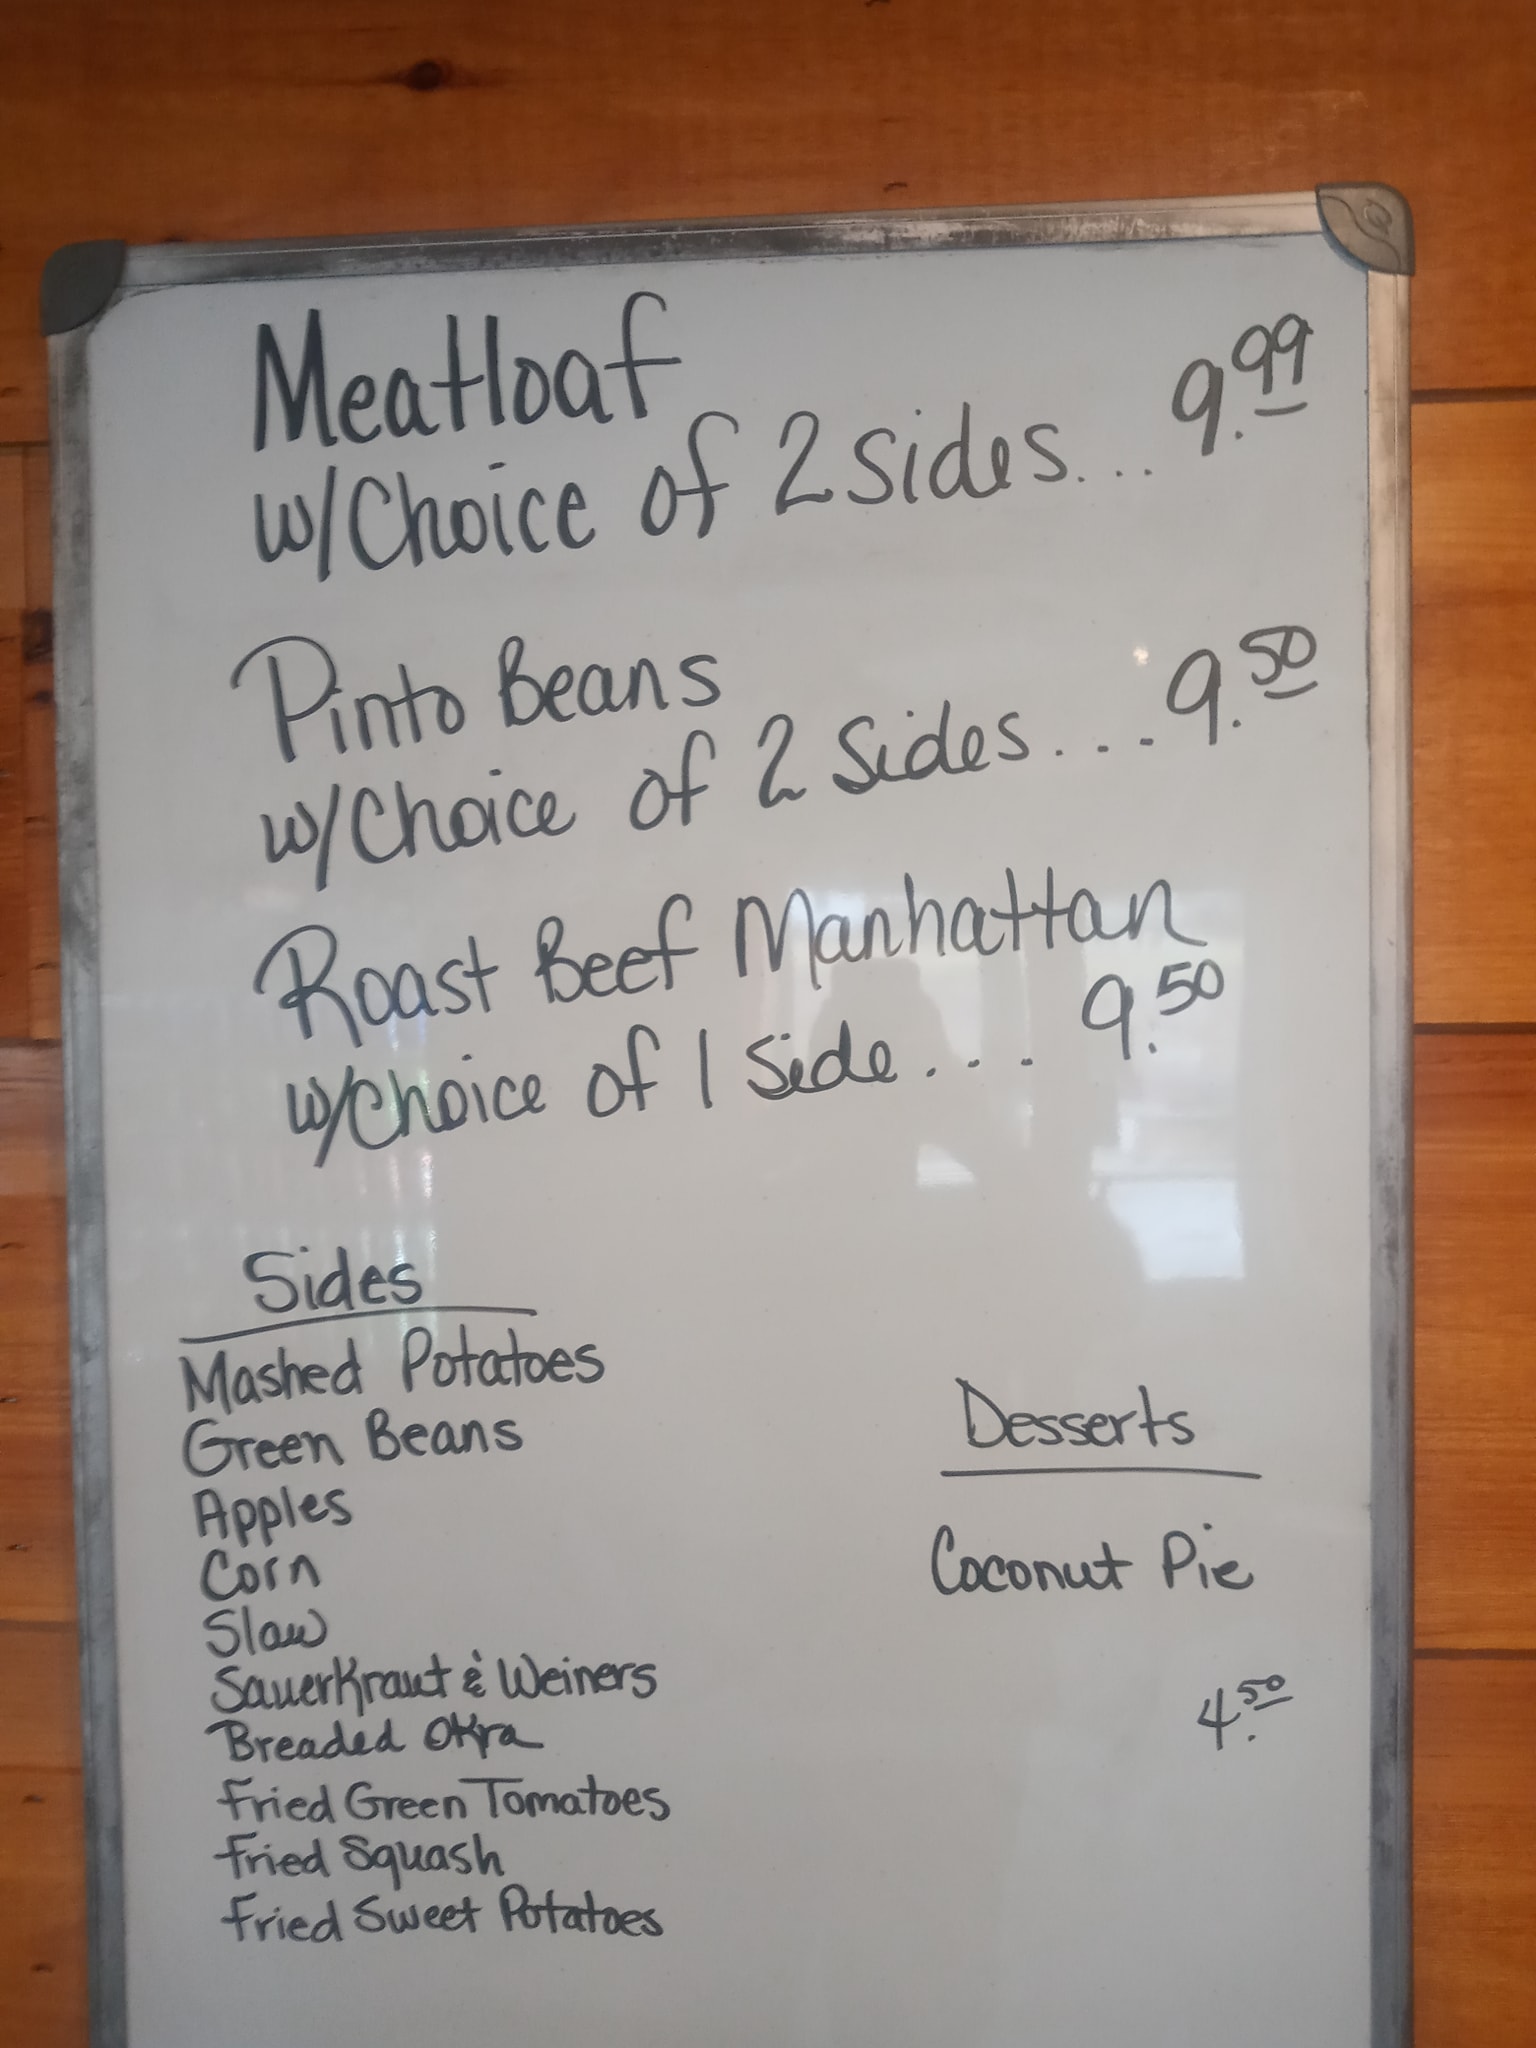 Meatloaf
w/Choice of 2 sides... 9.99
Pinto Beans
w/Choice of 2 Sides.... 9.50
Roast Beef Manhattan
w/Choice of 1 Side.... 9.50
Sides
Mashed Potatoes
Green Beans
Apples
Corn
Slaw
SauerKraut & Weiners
Breaded Okra
Fried Green Tomatoes
Fried Squash
Fried Sweet Potatoes
Desserts
Coconut Pie
4.50